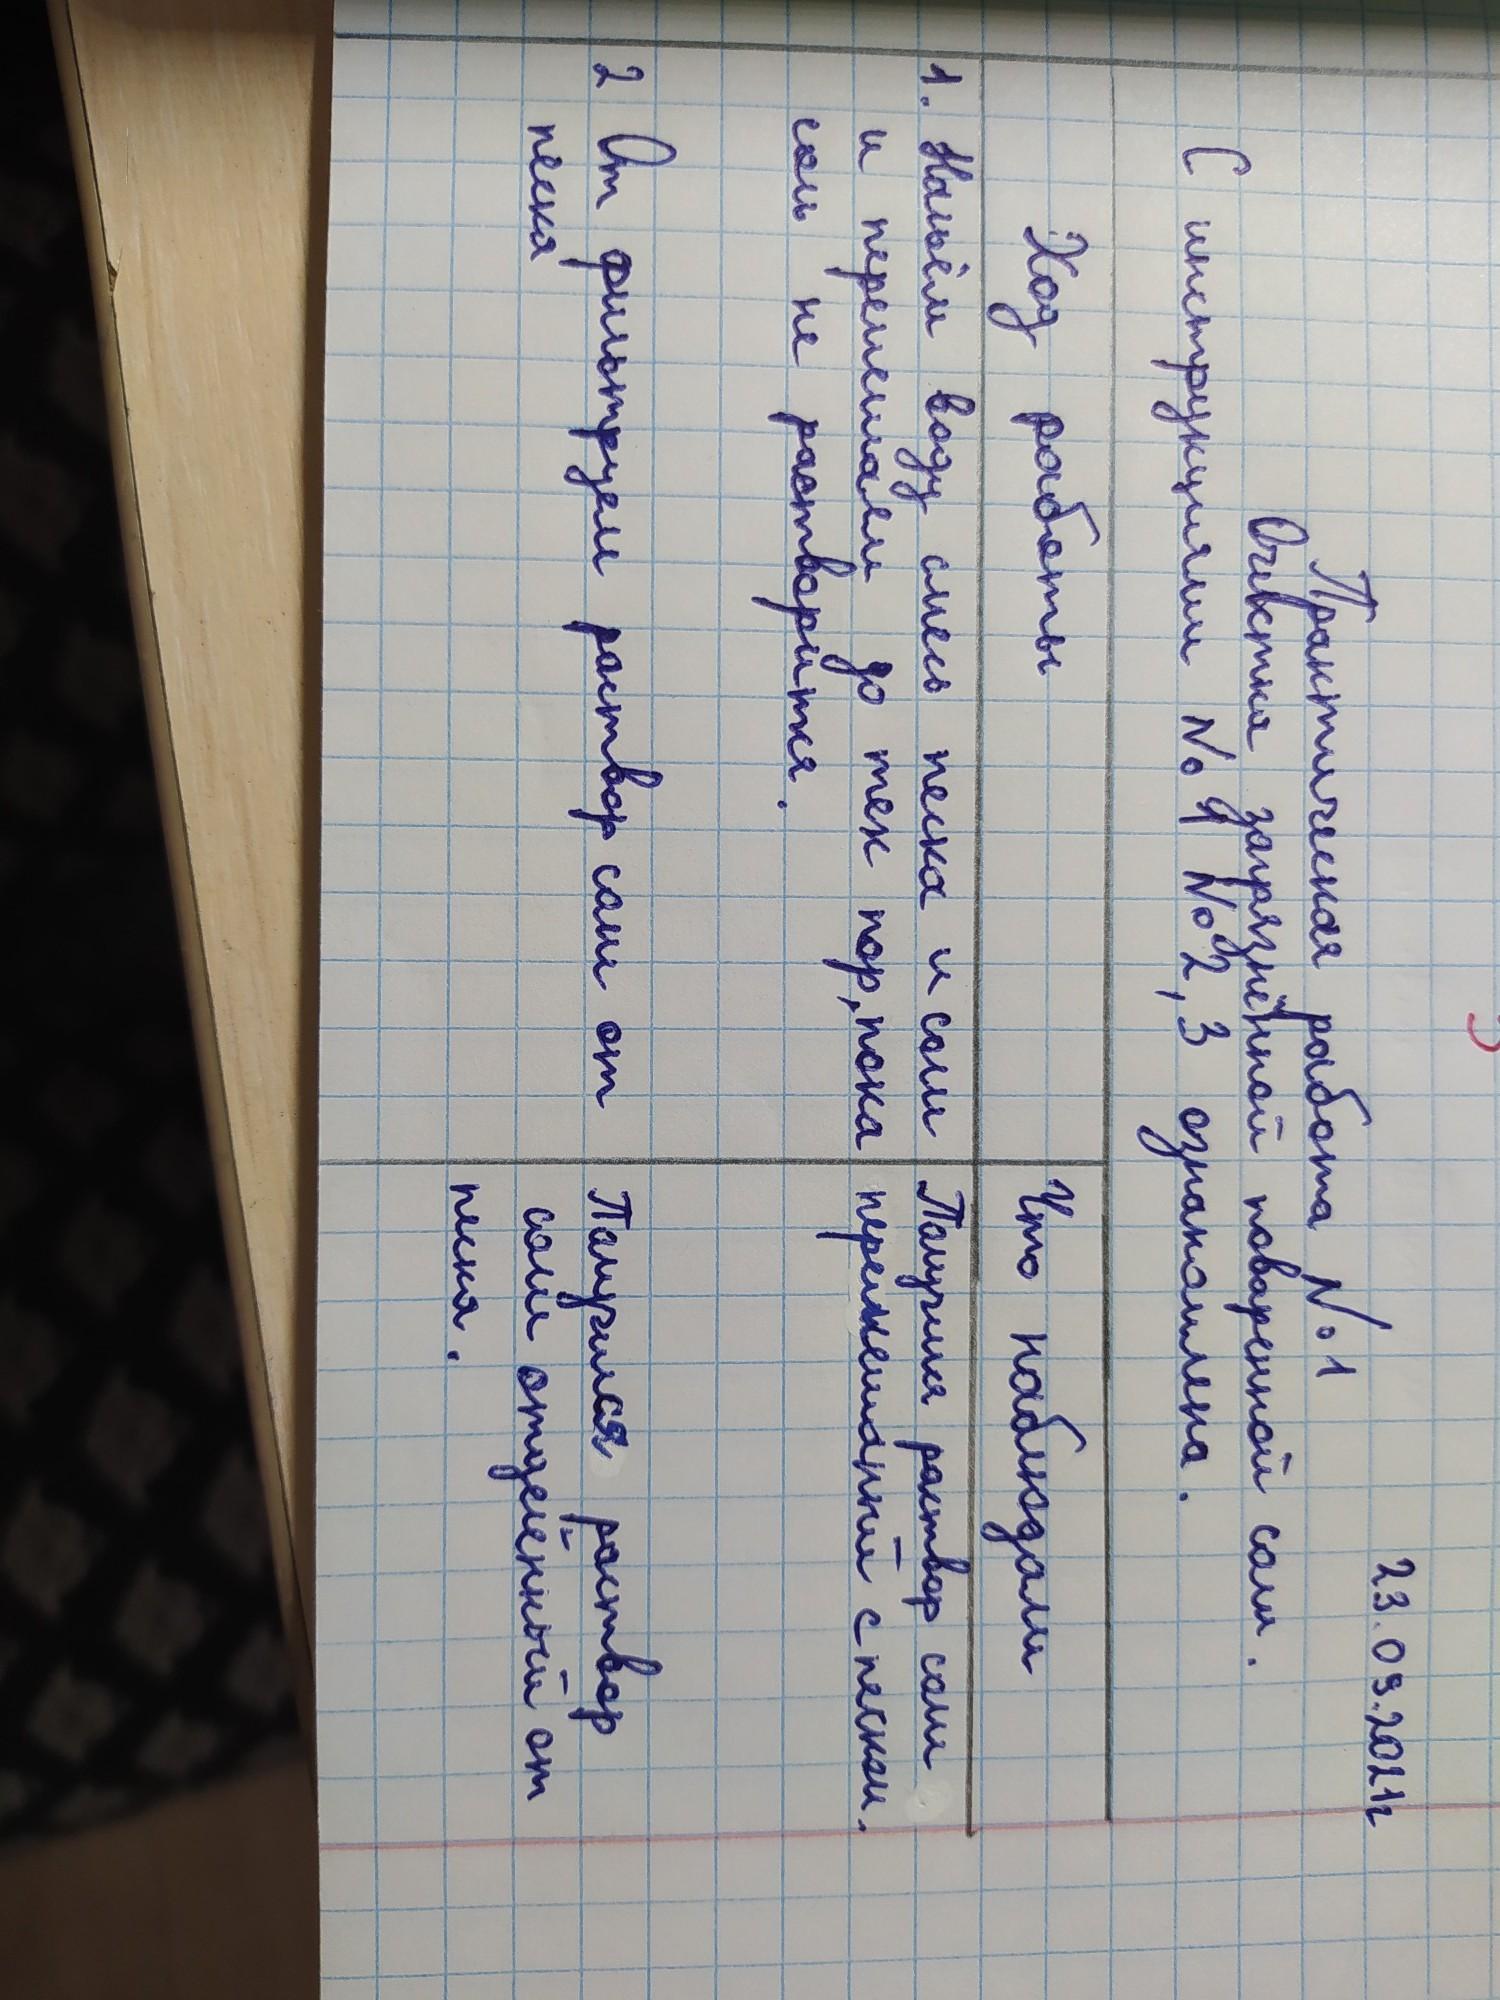 23.09.2021г
Практическая работа №1
Очистка загрязнённой поваренной соли.
С инструкциями №1 №2,3 ознакомлена.
Ход работы
Что наблюдали
1. Нальём воду смесь песка и соли
и перемешаем до тех пор, пока
соль не растворится.
Получили раствор соли
перемешаный с песком.
2 От фильтруем раствор соли от
песка
Получился раствор
соли отделённый от
песка.